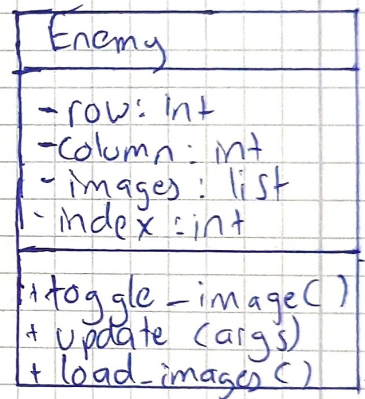 Enemy
- row: int
- column: int
- images: list
- index: int
+ toggle_image()
+ update (args)
+ load_images()